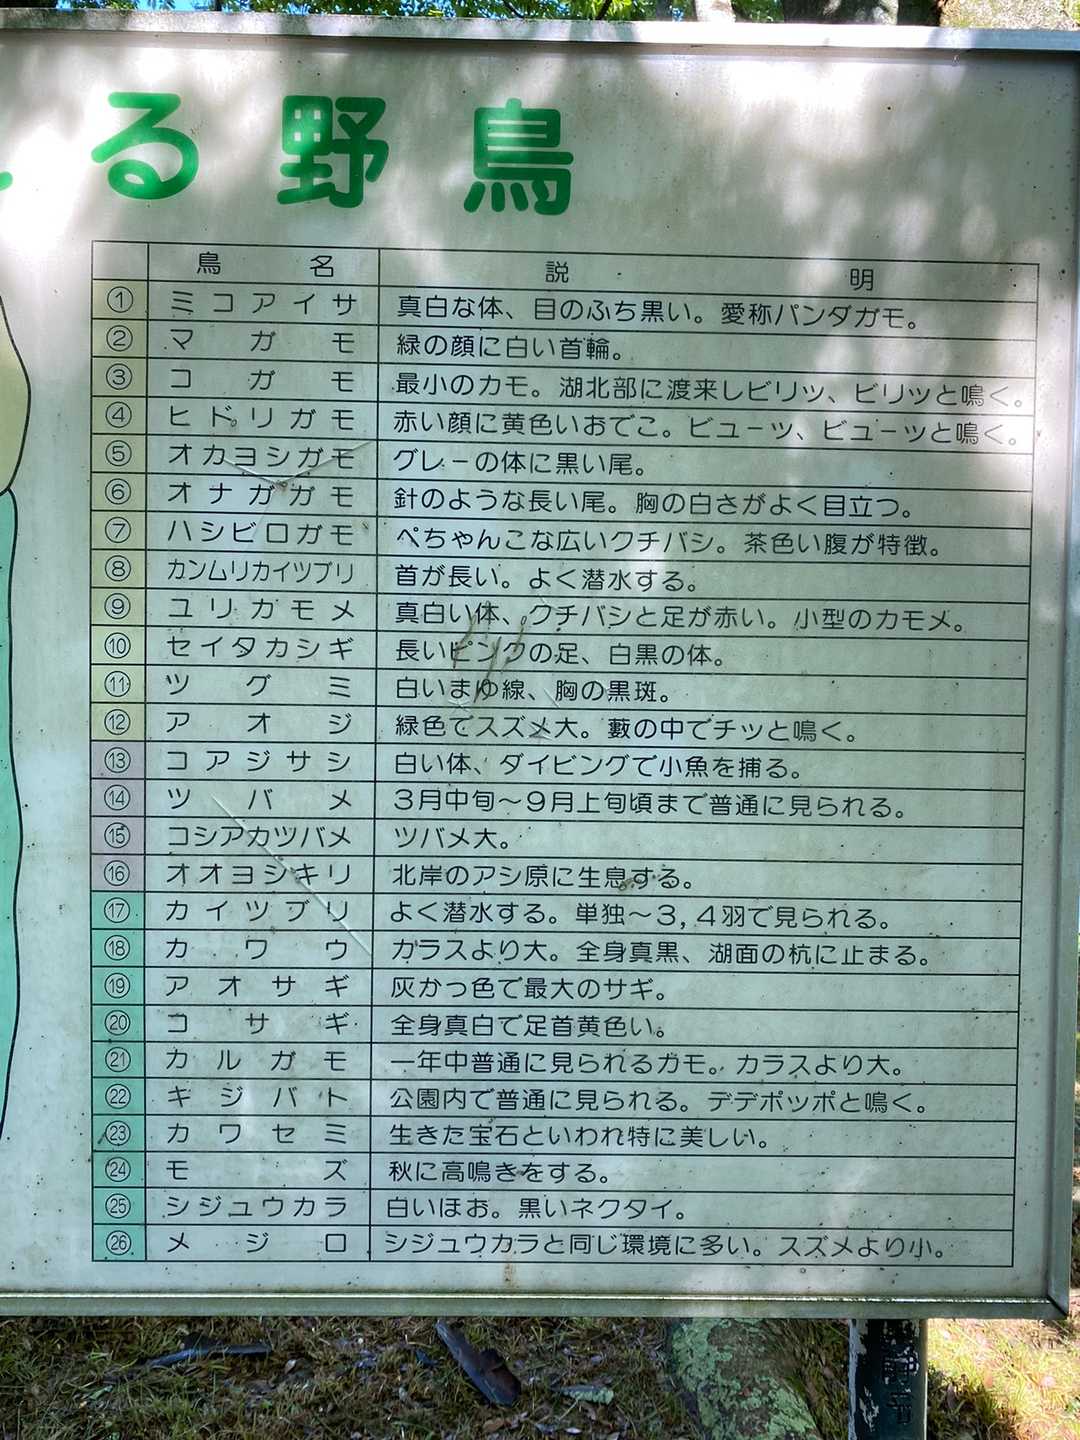 る野鳥
鳥名 説明
① ミコアイサ 真白な体、目のふち黒い。愛称パンダガモ。
② マガモ 緑の顔に白い首輪。
③ コガモ 最小のカモ。湖北部に渡来しビリッ、ビリッと鳴く。
④ ヒドリガモ 赤い顔に黄色いおでこ。ビューッ、ビューッと鳴く。
⑤ オカヨシガモ グレーの体に黒い尾。
⑥ オナガガモ 針のような長い尾。胸の白さがよく目立つ。
⑦ ハシビロガモ ぺちゃんこな広いクチバシ。茶色い腹が特徴。
⑧ カンムリカイツブリ 首が長い。よく潜水する。
⑨ ユリカモメ 真白い体、クチバシと足が赤い。小型のカモメ。
⑩ セイタカシギ 長いピンクの足、白黒の体。
⑪ ツグミ 白いまゆ線、胸の黒斑。
⑫ アオジ 緑色でスズメ大。藪の中でチッと鳴く。
⑬ コアジサシ 白い体、ダイビングで小魚を捕る。
⑭ ツバメ 3月中旬～9月上旬頃まで普通に見られる。
⑮ コシアカツバメ ツバメ大。
⑯ オオヨシキリ 北岸のアシ原に生息する。
⑰ カイツブリ よく潜水する。単独～3,4羽で見られる。
⑱ カワウ カラスより大。全身真黒、湖面の杭に止まる。
⑲ アオサギ 灰かっ色で最大のサギ。
⑳ コサギ 全身真白で足首黄色い。
㉑ カルガモ 一年中普通に見られるガモ。カラスより大。
㉒ キジバト 公園内で普通に見られる。デデポッポと鳴く。
㉓ カワセミ 生きた宝石といわれ特に美しい。
㉔ モズ 秋に高鳴きをする。
㉕ シジュウカラ 白いほお。黒いネクタイ。
㉖ メジロ シジュウカラと同じ環境に多い。スズメより小。